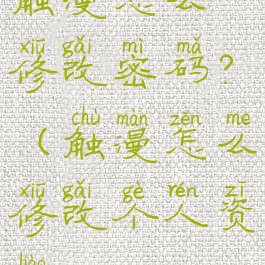 触漫怎么
xiū gǎi mì mǎ
修改密码?
chù màn zěn me
(触漫怎么
xiū gǎi gè rén zī
修改个人资
liào